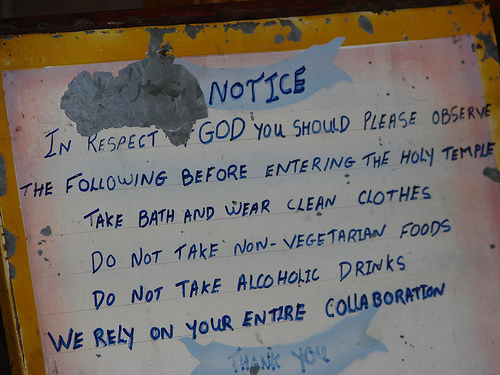 NOTICE
IN RESPECT GOD YOU SHOULD PLEASE OBSERVE
THE FOLLOWING BEFORE ENTERING THE HOLY TEMPLE
TAKE BATH AND WEAR CLEAN CLOTHES
DO NOT TAKE NON-VEGETARIAN FOODS
DO NOT TAKE ALCOHOLIC DRINKS
WE RELY ON YOUR ENTIRE COLLABORATION
THANK YOU